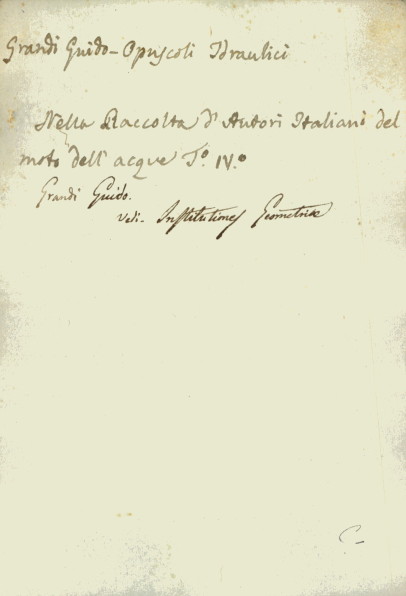 Grandi Guido - Opuscoli Idraulici
Nella Raccolta d'Autori Italiani del
moto dell'acque To. IV.o
Grandi Guido.
Vedi - Institutiones Geometricæ
C -